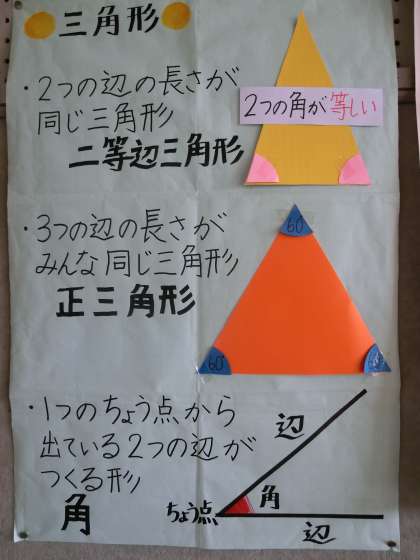 三角形
・2つの辺の長さが
同じ三角形
二等辺三角形
2つの角が等しい
・3つの辺の長さが
みんな同じ三角形
正三角形
60
60
・1つのちょう点から
出ている2つの辺が
つくる形
角
辺
角
ちょう点
辺